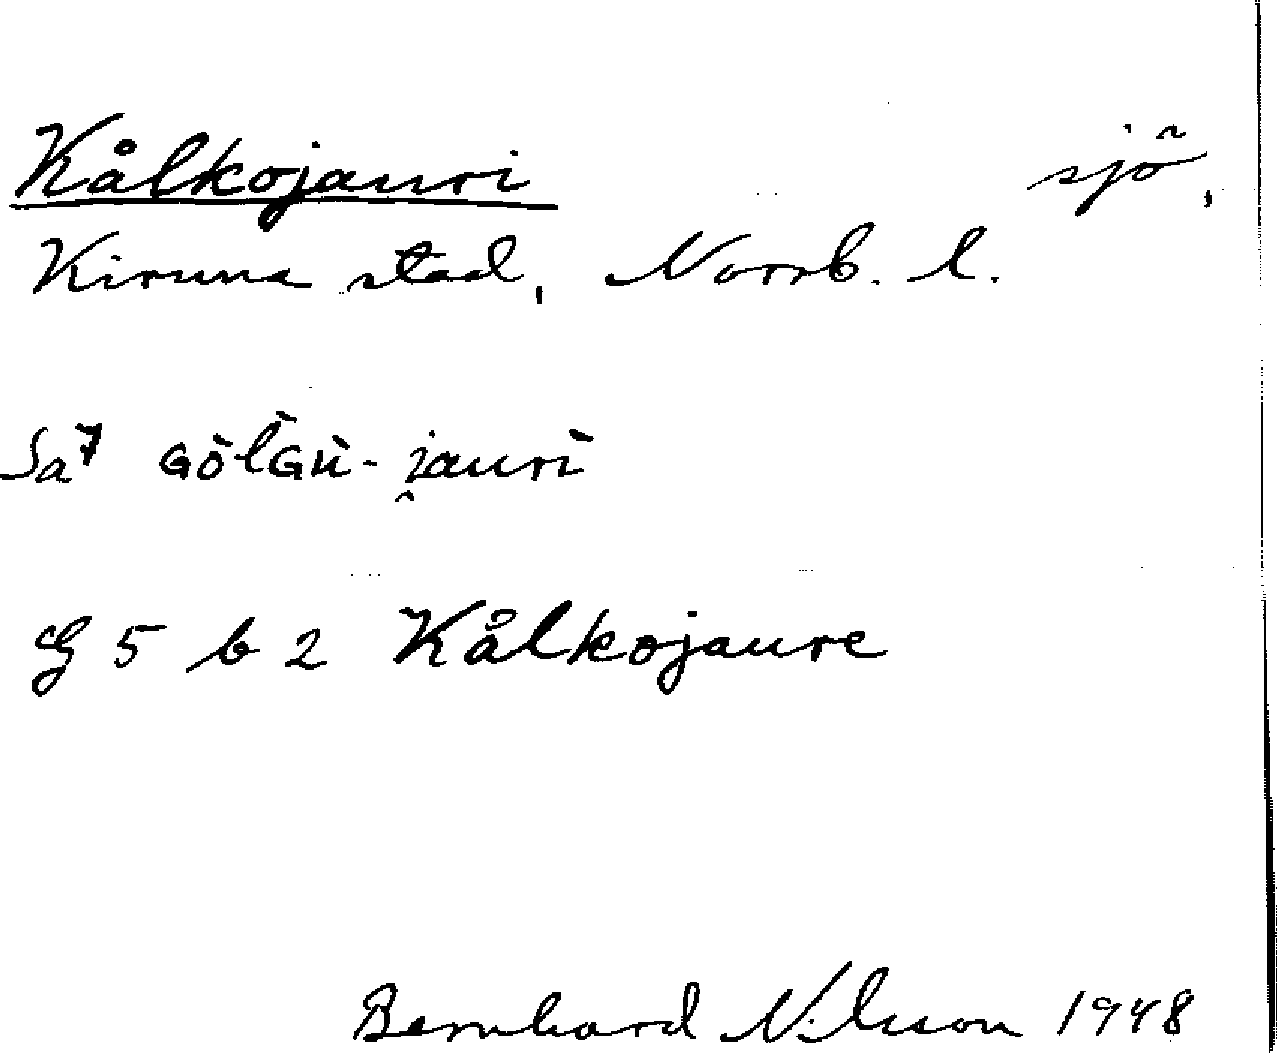 Kålkojauri sjö,
Kiruna stad, Norrb. l.
Sa⁷ ɢòl̀ɢù-i̯aurì
G 5 b 2 Kålkojaure
Bernhard Nilsson 1948